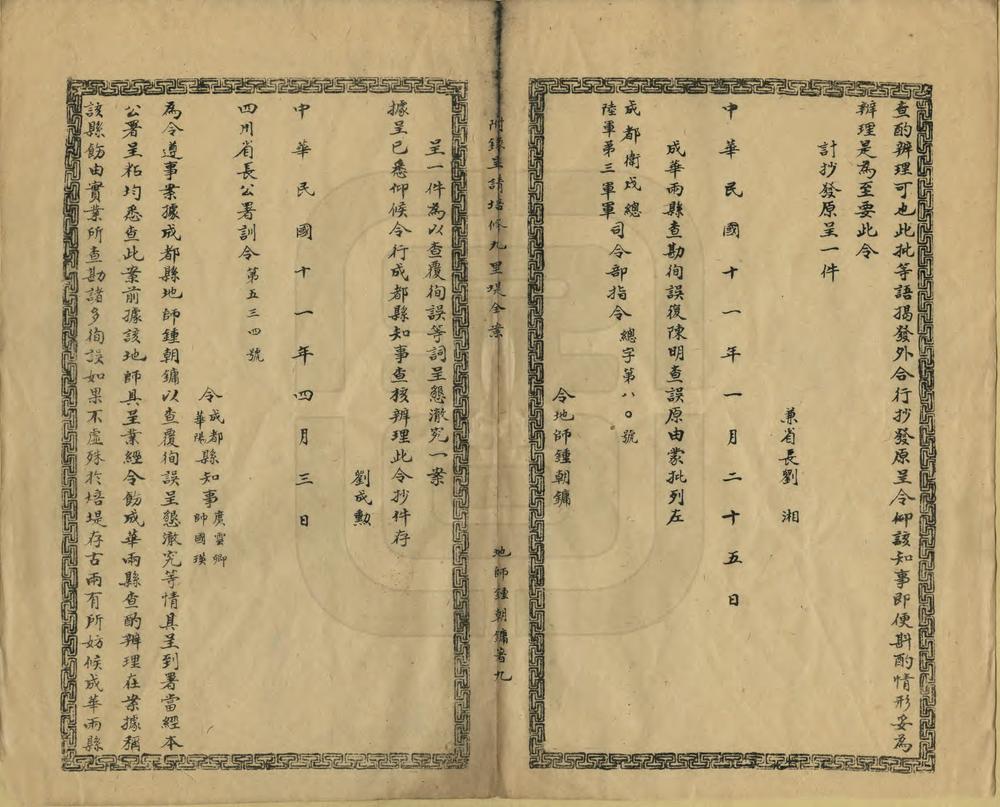 查酌辦理可也此批等語揭發外合行抄發原呈令仰該知事即便斟酌情形妥為
辦理是為至要此令
計抄發原呈一件
兼省長劉湘
中華民國十一年一月二十五日
成華兩縣查勘徇誤復陳明查誤原由蒙批列左
成都衛戍總
陸軍第三軍軍
司令部指令總字第八〇號
令地師鍾朝鏞
附錄呈請培修九里堤全案
地師鍾朝鏞著九
呈一件為以查覆徇誤等詞呈懇澈究一案
據呈已悉仰候令行成都縣知事查核辦理此令抄件存
劉成勳
中華民國十一年四月三日
四川省長公署訓令第五三四號
令成都華陽縣知事廣雲卿師國瑛
為令遵事案據成都縣地師鍾朝鏞以查覆徇誤呈懇澈究等情具呈到署當經本
公署呈粘均悉查此案前據該地師具呈業經令飭成華兩縣查酌辦理在案據稱
該縣飭由實業所查勘諸多徇誤如果不虛殊於培堤存古兩有所妨候成華兩縣